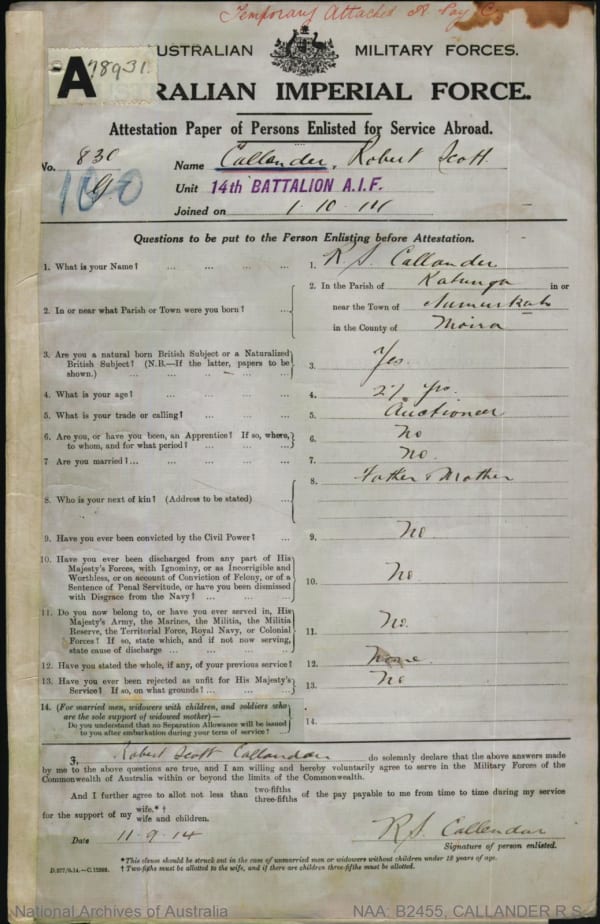 Temporary Attached A. Pay C
A 78931
AUSTRALIAN MILITARY FORCES.
AUSTRALIAN IMPERIAL FORCE.
Attestation Paper of Persons Enlisted for Service Abroad.
No. 830 Name Callander, Robert Scott
100 Unit 14th BATTALION A.I.F.
Joined on 1.10.14
Questions to be put to the Person Enlisting before Attestation.
1. What is your Name? ... ... ... ... 1. R S. Callander
2. In or near what Parish or Town were you born? ... 2. In the Parish of Katunga in or
near the Town of Numurkah
in the County of Moira
3. Are you a natural born British Subject or a Naturalized
British Subject? (N.B.—If the latter, papers to be
shown.) ... ... ... ... ... 3. Yes.
4. What is your age? ... ... ... ... 4. 27 yrs.
5. What is your trade or calling? ... ... ... 5. Auctioneer
6. Are you, or have you been, an Apprentice? If so, where,
to whom, and for what period? ... ... ... 6. No
7 Are you married?... ... ... ... ... 7. No.
8. Who is your next of kin? (Address to be stated) ... 8. Father & Mother
9. Have you ever been convicted by the Civil Power? ... 9. No.
10. Have you ever been discharged from any part of His
Majesty's Forces, with Ignominy, or as Incorrigible and
Worthless, or on account of Conviction of Felony, or of a
Sentence of Penal Servitude, or have you been dismissed
with Disgrace from the Navy? ... ... ... 10. No
11. Do you now belong to, or have you ever served in, His
Majesty's Army, the Marines, the Militia, the Militia
Reserve, the Territorial Force, Royal Navy, or Colonial
Forces? If so, state which, and if not now serving,
state cause of discharge ... ... ... ... 11. No.
12. Have you stated the whole, if any, of your previous service? 12. None.
13. Have you ever been rejected as unfit for His Majesty's
Service? If so, on what grounds? ... ... ... 13. No
14. (For married men, widowers with children, and soldiers who
are the sole support of widowed mother)—
Do you understand that no Separation Allowance will be issued
to you after embarkation during your term of service? 14.
I, Robert Scott Callander do solemnly declare that the above answers made
by me to the above questions are true, and I am willing and hereby voluntarily agree to serve in the Military Forces of the
Commonwealth of Australia within or beyond the limits of the Commonwealth.
And I further agree to allot not less than two-fifths three-fifths of the pay payable to me from time to time during my service
for the support of my wife.* † wife and children.
Date 11.9.14 R S. Callander
Signature of person enlisted.
*This clause should be struck out in the case of unmarried men or widowers without children under 18 years of age.
D.277/9.14.—C.12898. † Two-fifths must be allotted to the wife, and if there are children three-fifths must be allotted.
National Archives of Australia NAA: B2455, CALLANDER R S